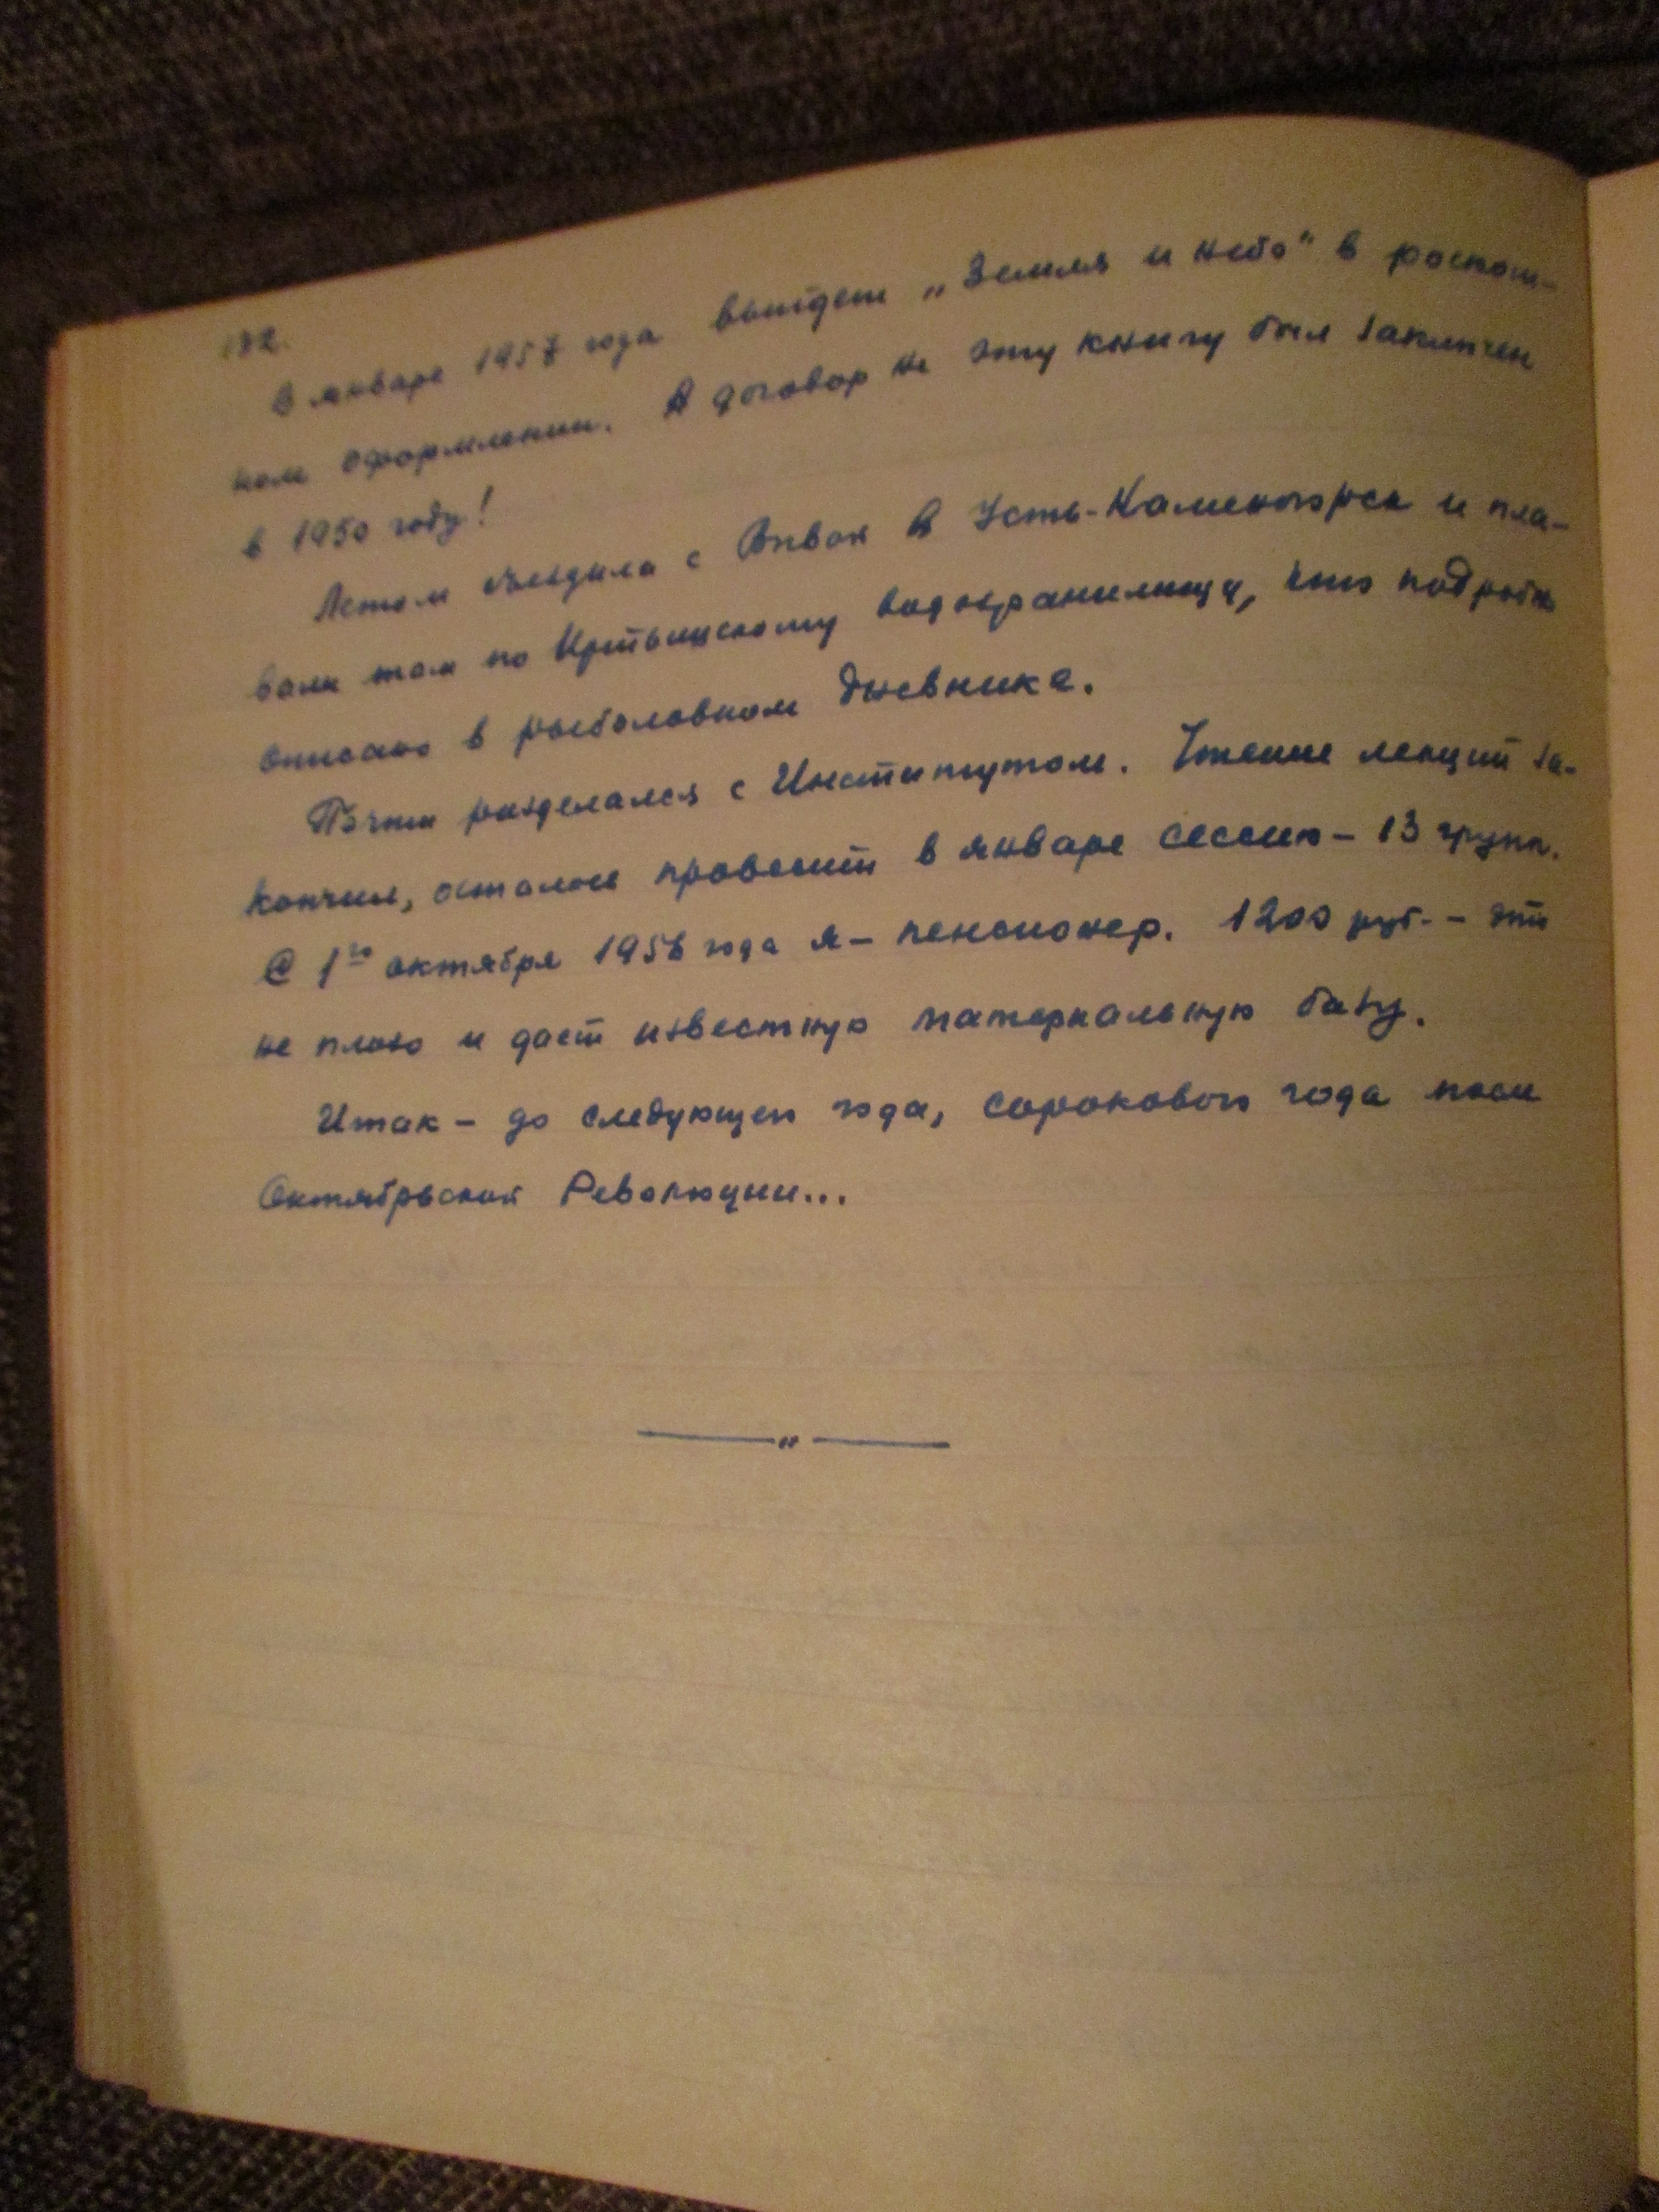 182.
В январе 1957 года выйдет „Земля и небо“ в роскош-
ном оформлении. А договор на эту книгу был заключен
в 1950 году!
Летом съездили с Вивой в Усть-Каменогорск и пла-
вали там по Иртышскому водохранилищу, что подробно
описано в рыболовном дневнике.
Почти разделался с Институтом. Чтение лекций за-
кончил, осталось провести в январе сессию – 13 групп.
С 1го октября 1956 года я – пенсионер. 1200 руб. – это
не плохо и дает известную материальную базу.
Итак – до следующего года, сорокового года после
Октябрьской Революции...